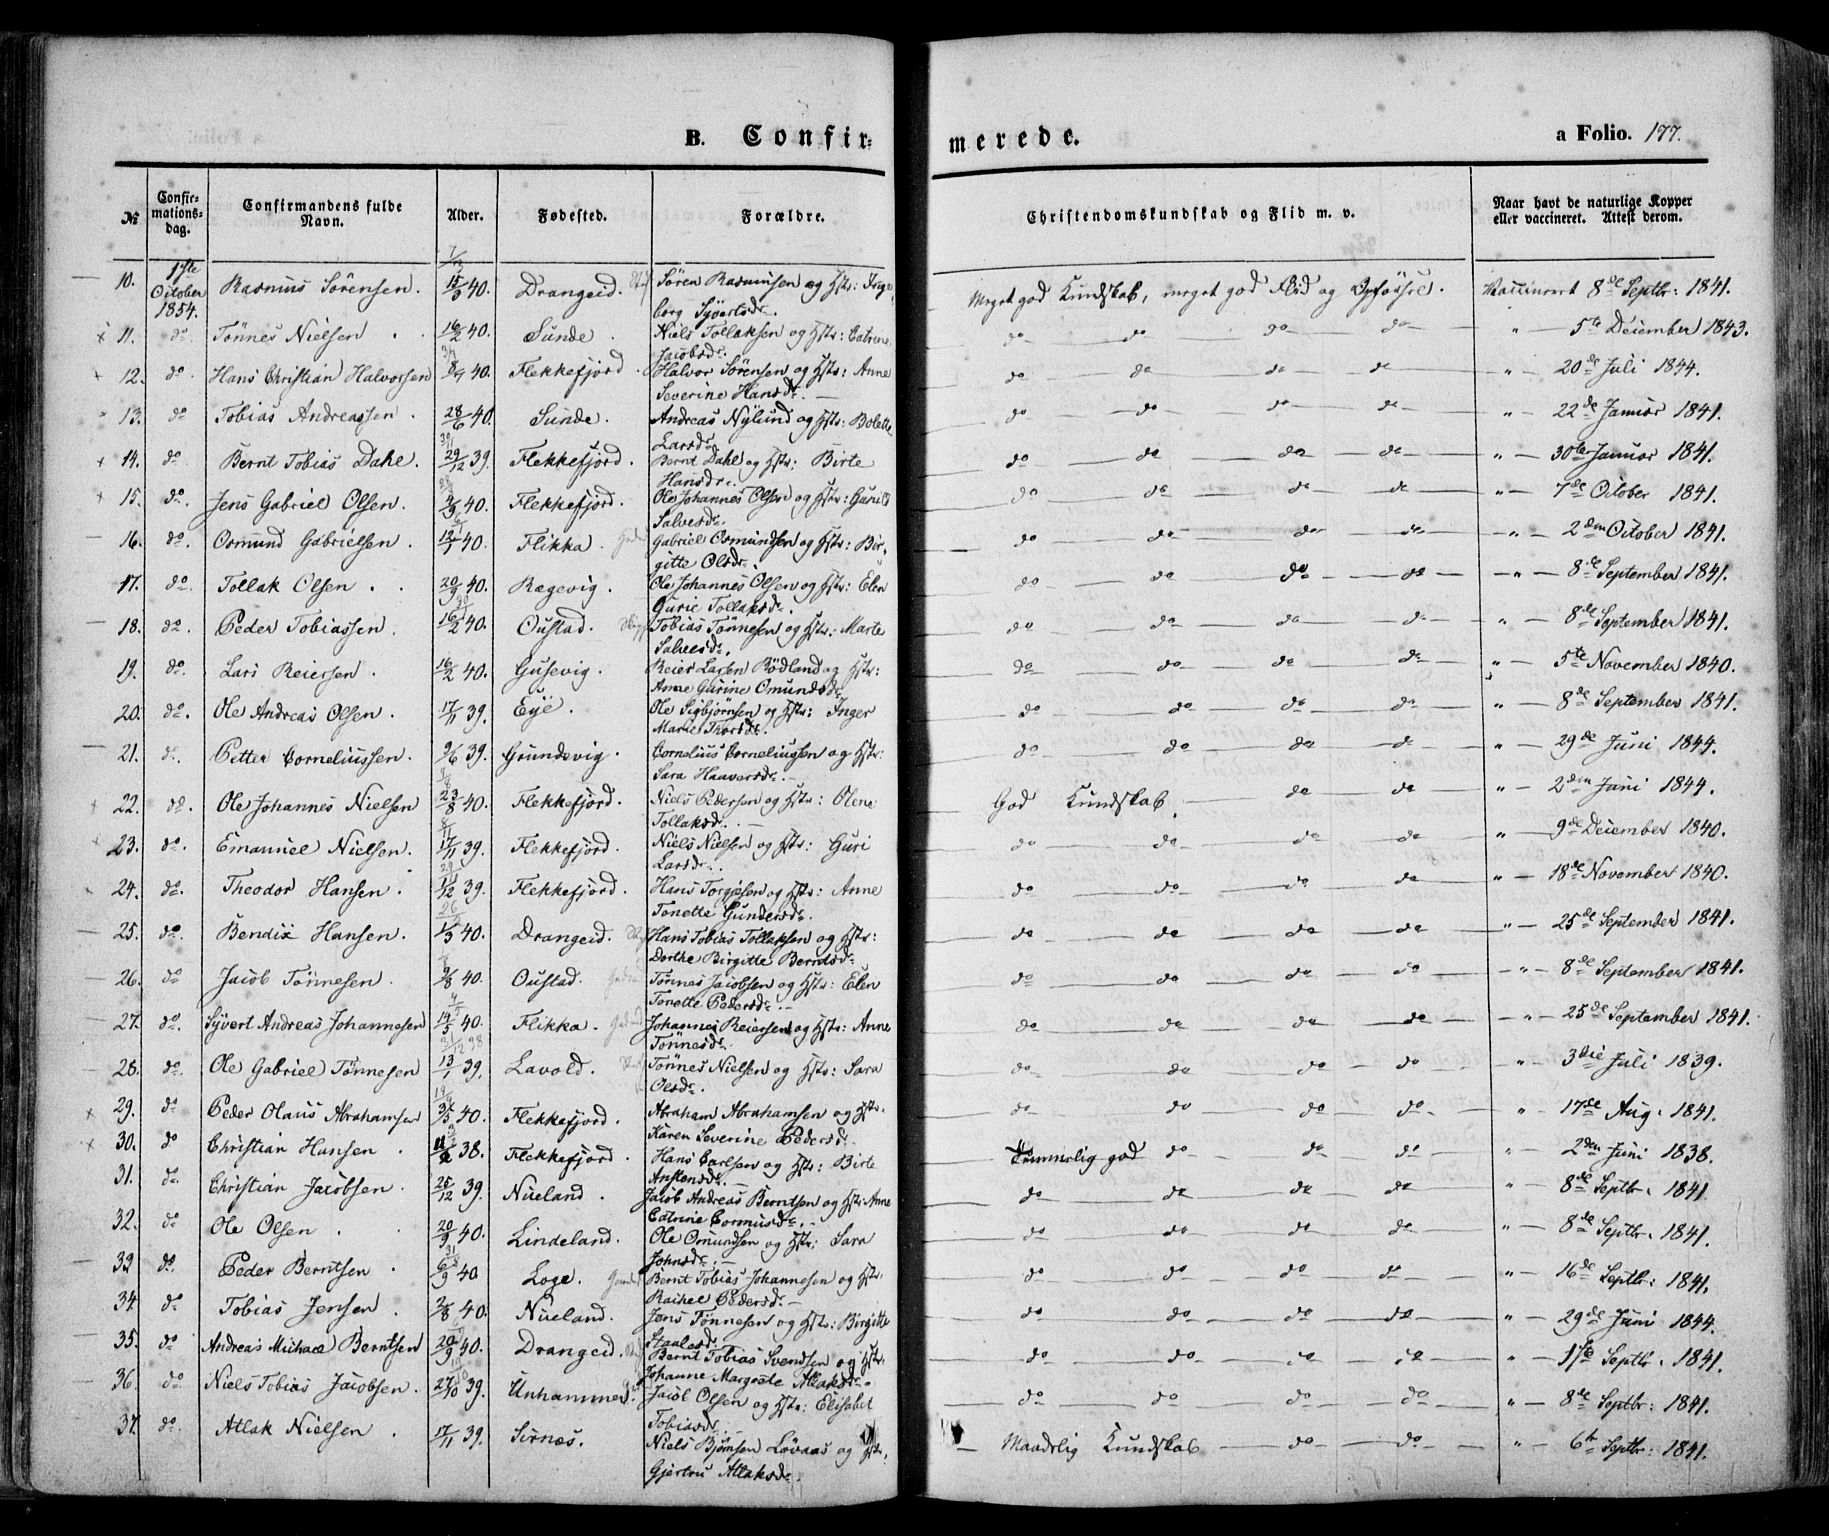 B. Confir-
merede.
a Folio. 177.
No
Confir-
mations-
dag.
Confirmandens fulde
Navn.
Alder.
Fødested.
Forældre.
Christendomskundskab og Flid m. v.
Naar havt de naturlige Kopper
eller vaccineret. Attest derom.
10. 1ste October 1854. Rasmus Sørensen. 15/3 40. Drangeid. Søren Rasmusen og Hstr: Inge- Meget god Kundskab, meget god Flid og Opførsel. Vaccineret 8de Septbr: 1841.
borg Syvertsdr.
11. do. Tønnes Nielsen. 16/2 40. Sunde. Niels Tollaksen og Hstr: Catrine do do do do " 5te December 1843.
Jacobsdr.
12. do. Hans Christian Halvorsen 40. Flekkefjord. Halvor Sørensen og Hstr: Anne do do do do " 20de Juli 1844.
Severine Hansdr.
13. do Tobias Andreassen. 28/6 40. Sunde. Andreas Nylund og Hstr: Bolette do do do do " 22de Januar 1841.
Larsdr.
14. do. Bernt Tobias Dahl. 29/12 39. Flekkefjord. Bernt Dahl og Hstr: Birte do do do do " 30te Januar 1841.
Hansdr.
15. do. Jens Gabriel Olsen. 40. Flekkefjord. Ole Johannes Olsen og Hstr: Guri do do do do " 7de October 1841.
Salvesdr.
16. do. Osmund Gabrielsen. 40. Flikka. Gabriel Osmundsen og Hstr: Bir- do do do do " 2den October 1841.
gitte Olsdr.
17. do. Tollak Olsen. 20/9 40. Rægevig. Ole Johannes Olsen og Hstr: Elen do do do do " 8de September 1841.
Gurie Tollaksdr.
18. do. Peder Tobiassen. 16/2 40. Oustad. Tobias Tønnesen og Hstr: Marte do do do do " 8de September 1841.
Salvesdr.
19. do. Lars Reiersen. 16/2 40. Gusevig. Reier Larsen Rødland og Hstr: do do do do " 5te November 1840.
Anne Gurine Omundsdr.
20. do. Ole Andreas Olsen. 17/11 39. Eye. Ole Sigbjørnsen og Hstr: Inger do do do do " 8de September 1841.
Marie Thorsdr.
21. do. Petter Corneliussen. 9/6 39. Grundevig. Cornelius Corneliussen og Hstr: do do do do " 29de Juni 1844.
Sara Haaversdr.
22. do. Ole Johannes Nielsen 23/8 40. Flekkefjord. Niels Pedersen og Hstr: Olene God Kundskab, do do " 2den Juni 1844.
Tollaksdr.
23. do. Emanuel Nielsen. 17/11 39. Flekkefjord. Niels Nielsen og Hstr: Guri do do do do " 9de December 1840.
Larsdr.
24. do. Theodor Hansen. 39. Flekkefjord. Hans Torgjesen og Hstr: Anne do do do do " 18de November 1840.
Tonette Gundersdr.
25. do. Bendix Hansen. 40. Drangeid. Hans Tobias Tollaksen og Hstr: do do do do " 25de September 1841.
Dorthe Birgitte Berntsdr.
26. do Jacob Tønnesen. 40. Oustad. Tønnes Jacobsen og Hstr: Elen do do do do " 8de September 1841.
Tonette Pedersdr.
27. do. Syvert Andreas Johannesen 14/5 40. Flikka. Johannes Reiersen og Hstr: Anne do do do do " 25de September 1841.
Tønnesdr.
28. do. Ole Gabriel Tønnesen 13/1 39. Lavold. Tønnes Nielsen og Hstr: Sara do do do do " 3die Juli 1839.
Olsdr.
29. do Peder Olaus Abrahamsen 40. Flekkefjord. Abraham Abrahamsen og Hstr. do do do do " 17de Aug. 1841.
Karen Severine Pedersdr.
30. do Christian Hansen. 38. Flekkefjord. Hans Carlsen og Hstr: Birte Temmelig god do do do " 2den Juni 1838.
Anstensdr.
31. do. Christian Jacobsen. 39. Nueland. Jacob Andreas Berntsen og Hstr: Anne do do do do " 8de Septbr. 1841.
Catrine Cormusdr.
32. do Ole Olsen. 20/9 40. Lindeland. Ole Omundsen og Hstr: Sara do do do do " 8de Septbr. 1841.
Johnsdr.
33. do. Peder Berntsen. 6/9 40. Loge. Bernt Tobias Johannesen og Hstr. do do do do " 16de Septbr: 1841.
Rachel Pedersdr.
34. do Tobias Jensen. 40. Nueland. Jens Tønnesen og Hstr: Birgitte do do do do " 29de Juni 1844.
Staalesdr.
35. do Andreas Michael Berntsen 20/9 40. Drangeid. Bernt Tobias Svendsen og Hstr. do do do do " 17de Septbr. 1841.
Johanne Margrete Atlaksdr.
36. do. Niels Tobias Jacobsen. 27/10 39. Unhammer. Jacob Olsen og Hstr: Elisabet do do do do " 8de Septbr: 1841.
Tobiasdr.
37. do. Atlak Nielsen. 17/11 39. Sirnæs. Niels Bjørnsen Løvaas og Hstr. Maadelig Kundskab do do " 6te Septbr: 1841.
Gjertru Atlaksdr.